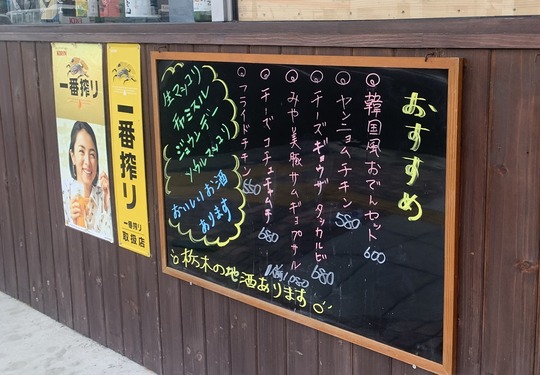 おすすめ
韓国風おでんセット 600
ヤンニョムチキン 580
チーズギョウザ タッカルビ 680
みやび美豚サムギョプサル 1,080
チーズコチュチャムチ 680
フライドチキン 680
生マッコリ
チャミスル
ジョウンデー
ソウルマッコリ
おいしいお酒
あります
栃木の地酒あります
一番搾り
一番搾り
一番搾り
取扱店